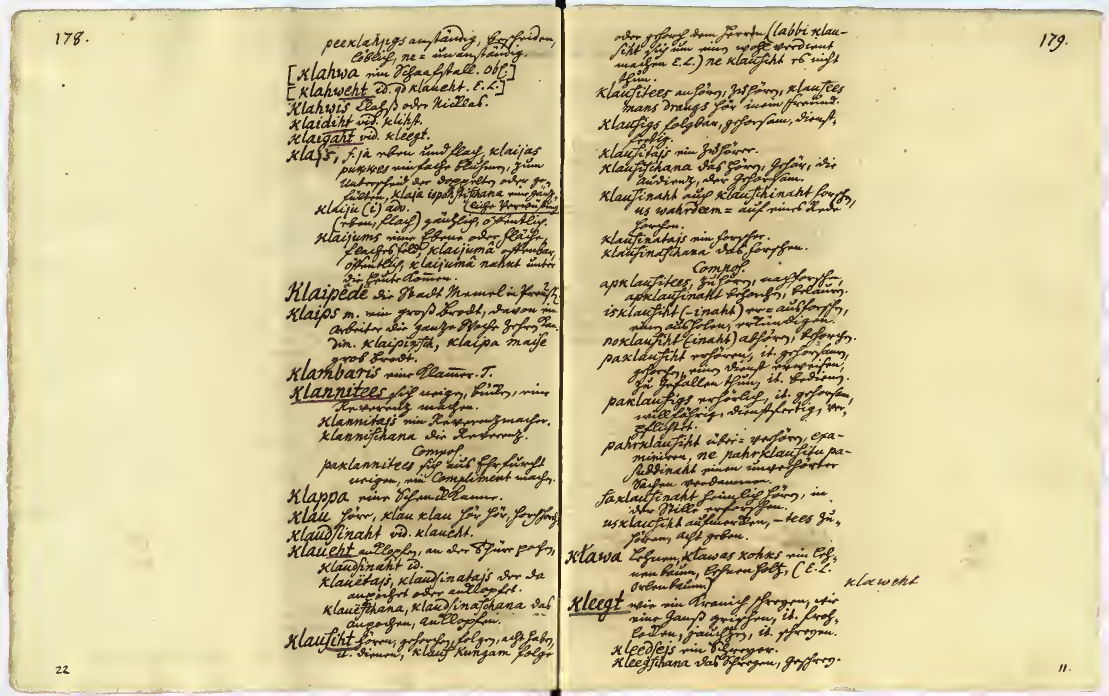 178.
peeklahjigs anständig, bescheiden,
löblich, ne = unanständig.
[Klahwa ein Schaafstall. Obs.]
[Klahweht id. qd klaueht. E.L.]
Klahwis Clahß oder Nicklas.
Klaidiht vid. klihst.
Klaigaht vid. kleegt.
Klajs, f. ja eben und flach, klaijas
pukkes einfache Bluhmen, zum
Unterscheid der doppelten oder ge-
füllten, klaja ispohstischana eine gäntz-
liche Verwüstung
klaiju (i) adv.
(eben, flach) gäntzlich, öffentlich.
klaijums eine Ebene oder Fläche,
flaches Feld, klaijumâ offenbar,
öffentlich, klaijumâ nahkt unter
die Leute kommen.
Klaipede die Stadt Memel in Preuß.
Klaips m. ein groß Brodt, davon ein
Arbeiter die gantze Woche zehren kan.
din. klaipinsch, klaipa maise
grob Brodt.
Klambaris eine Klammer. T.
Klannitees sich neigen, bücken, eine
Reverentz machen.
klannitajs ein Reverentzmacher.
klannischana die Reverentz.
Compos.
paklannitees sich aus Ehrfurcht
neigen, ein Compliment machen.
Klappa eine Schenckkanne.
Klau höre, klau klau hör hör, horch horch
Klaudsinaht vid. klaueht.
Klaueht anklopfen, an der Thüre pochen,
klaudsinaht id.
klauëtajs, klaudsinatajs der da
anpocht oder anklopfet.
klauëschana, klaudsinaschana das
anpochen, anklopfen.
Klausiht hören, gehorchen, folgen, acht haben,
it. dienen, klausi kungam folge
22
179.
oder gehorch dem Herrn (labbi klau-
siht sich um einen wohl verdient
machen E.L.) ne klausiht es nicht
thun.
klausitees anhören, zuhören, klausees
mans draugs hör mein Freund.
klausigs folgbar, gehorsam, dienst-
fertig.
klausitajs ein Zuhörer.
klausischana das Hören, Gehör, die
Audientz, der Gehorsam.
klausinaht auch klauschinaht horchen,
us wahrdeem = auf eines Rede
horchen.
klausinatajs ein Forscher.
klausinaschana das Forschen.
Compos.
apklausitees, zuhören, nachforschen,
apklausinaht behorchen, belauren.
isklausiht (-inaht) er= ausforschen,
einen ausholen, erkündigen.
noklausiht (inaht) abhören, behorchen.
paklausiht erhören, it. gehorsamen,
gehorchen, einen Dienst erweisen,
zu Gefallen thun, it. bedienen.
paklausigs erhörlich, it. gehorsam,
willfährig, dienstfertig, ver-
pflichtet.
pahrklausiht über= verhören, exa-
miniren, ne pahrklausitu pa-
suddinaht einen unverhörter
Sachen verdammen.
saklausinaht heimlich hören, in
der Stille erforschen.
usklausiht aufmercken, -tees zu-
hören, acht geben.
Kława Lehnen, kławas kohks ein Leh-
nenbaum, Lehnenholtz, (E.L.
Orlenbaum)
klaweht
Kleegt wie ein Kranich schreyen, wie
eine Ganß gripschen, it. froh-
locken, jauchzen, it. schreyen.
kleedsejs ein Schreyer.
kleegschana das Schreyen, Geschrey.
11.